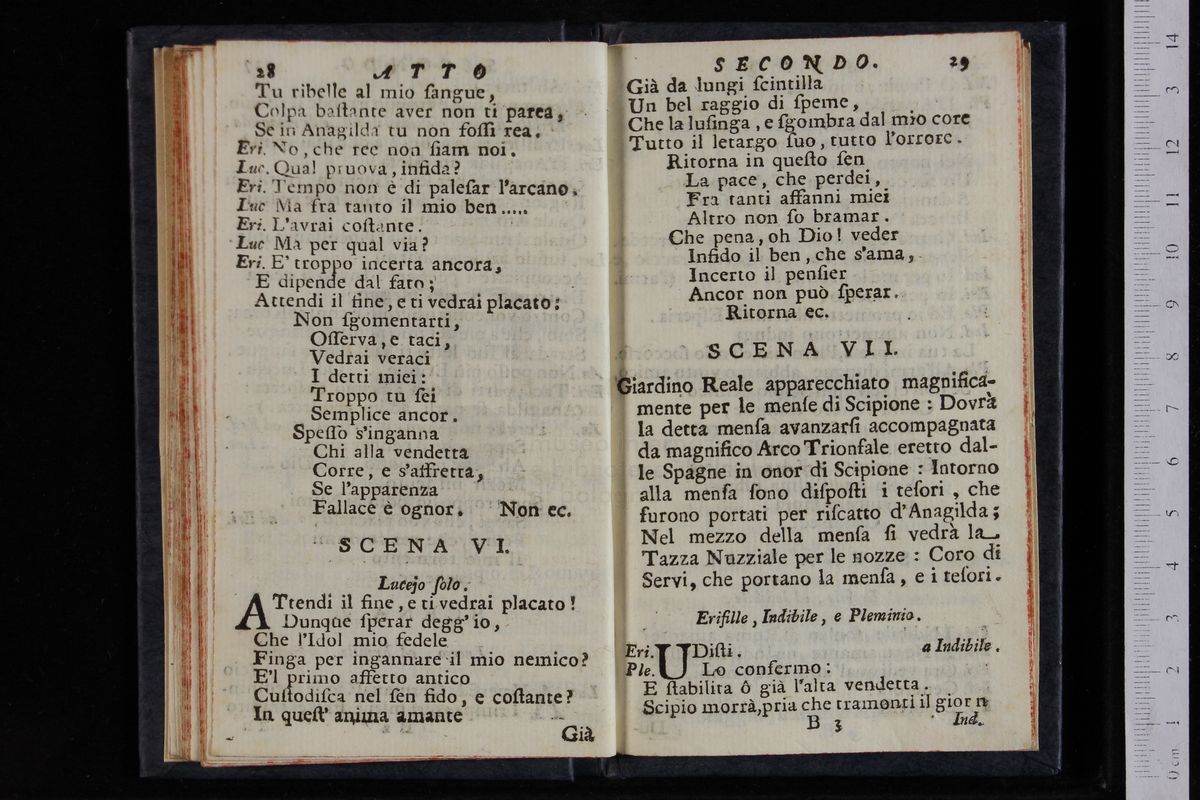 28 ATTO
Tu ribelle al mio ſangue,
Colpa baſtante aver non ti parea,
Se in Anagilda tu non foſſi rea.
Eri. No, che ree non ſiam noi.
Luc. Qual pruova, infida?
Eri. Tempo non è di paleſar l'arcano.
Luc Ma fra tanto il mio ben.....
Eri. L'avrai coſtante.
Luc Ma per qual via?
Eri. E' troppo incerta ancora,
E dipende dal fato;
Attendi il fine, e ti vedrai placato:
Non ſgomentarti,
Oſſerva, e taci,
Vedrai veraci
I detti miei:
Troppo tu ſei
Semplice ancor.
Speſſo s'inganna
Chi alla vendetta
Corre, e s'affretta,
Se l'apparenza
Fallace è ognor. Non ec.
SCENA VI.
Lucejo ſolo.
ATtendi il fine, e ti vedrai placato!
Dunque ſperar degg' io,
Che l'Idol mio fedele
Finga per ingannare il mio nemico?
E'l primo affetto antico
Cuſtodiſca nel ſen fido, e coſtante?
In queſt' anima amante
Già
SECONDO. 29
Già da lungi ſcintilla
Un bel raggio di ſpeme,
Che la luſinga, e ſgombra dal mio core
Tutto il letargo ſuo, tutto l'orrore.
Ritorna in queſto ſen
La pace, che perdei,
Fra tanti affanni miei
Altro non ſo bramar.
Che pena, oh Dio! veder
Infido il ben, che s'ama,
Incerto il penſier
Ancor non può ſperar.
Ritorna ec.
SCENA VII.
Giardino Reale apparecchiato magnifica-
mente per le menſe di Scipione: Dovrà
la detta menſa avanzarſi accompagnata
da magnifico Arco Trionfale eretto dal-
le Spagne in onor di Scipione: Intorno
alla menſa ſono diſpoſti i teſori, che
furono portati per riſcatto d'Anagilda;
Nel mezzo della menſa ſi vedrà la
Tazza Nuzziale per le nozze: Coro di
Servi, che portano la menſa, e i teſori.
Erifille, Indibile, e Pleminio.
Eri. UDiſti. a Indibile.
Ple. Lo confermo:
E ſtabilita ô già l'alta vendetta.
Scipio morrà, pria che tramonti il giorn
B 3 Ind.
0 cm 1 2 3 4 5 6 7 8 9 10 11 12 3 14